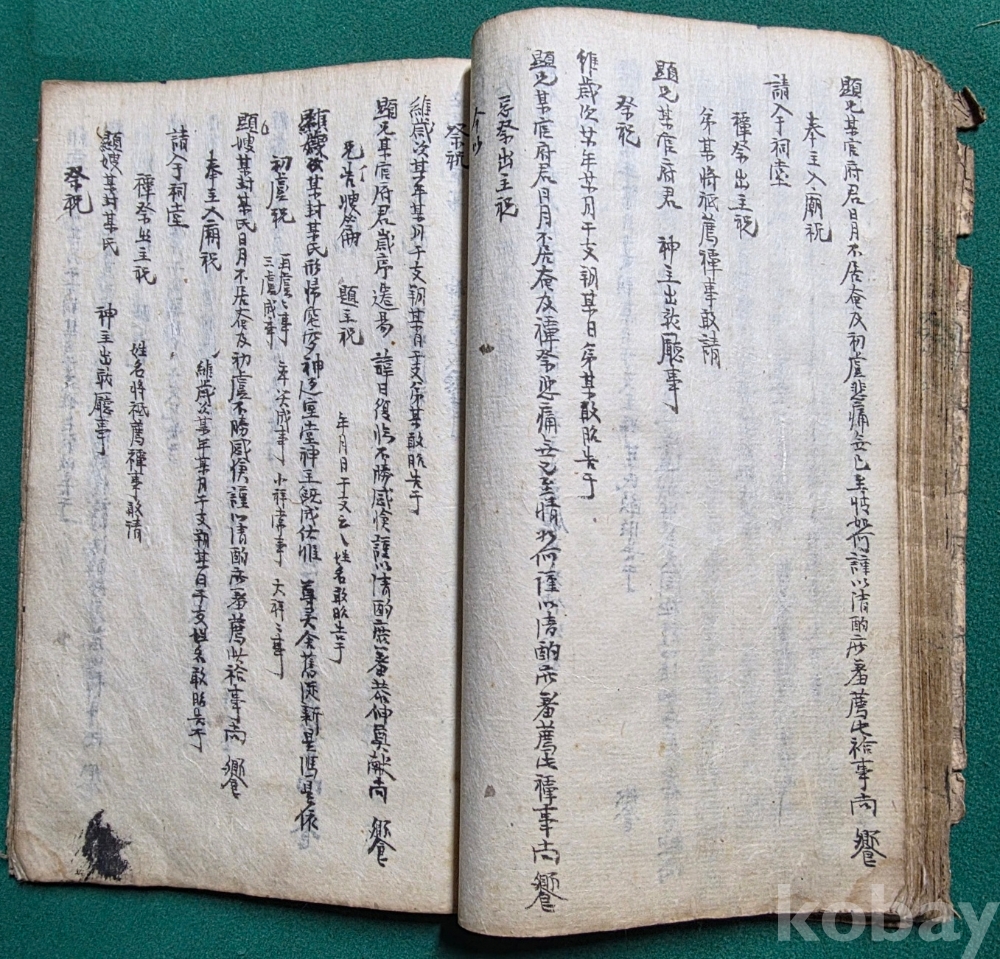 顯兄某官府君日月不居奄及初虞悲痛無已至情如何謹以淸酌庶羞薦此祫事尙 饗
奉主入廟祝
請入于祠堂
禫祭出主祝
弟某將祗薦禫事敢請
顯兄某官府君 神主出就廳事
祭祝
維歲次某年某月干支朔某日弟某敢昭告于
顯兄某官府君日月不居奄及禫祭悲痛無已至情如何謹以淸酌庶羞薦此禫事尙 饗
忌祭出主祝
祭祝
維歲次某年某月干支朔某日干支弟某敢昭告于
顯兄某官府君歲序遷易 諱日復臨不勝感愴謹以淸酌庶羞恭伸奠獻尙 饗
題主祝 年月日干支云云姓名敢昭告于
某封某氏形歸窀穸神返室堂神主旣成伏惟 尊灵舍舊從新是憑是依
初虞祝 再虞虞事 三虞成事 卒哭成事 小祥常事 大祥祥事
顯嫂某封某氏日月不居奄及初虞不勝感愴謹以淸酌庶羞薦此祫事尙 饗
奉主入廟祝 維歲次某年某月干支朔某日干支姓名敢昭告于
請入于祠堂
禫祭出主祝 姓名將祗薦禫事敢請
顯嫂某封某氏 神主出就廳事
祭祝
kobay